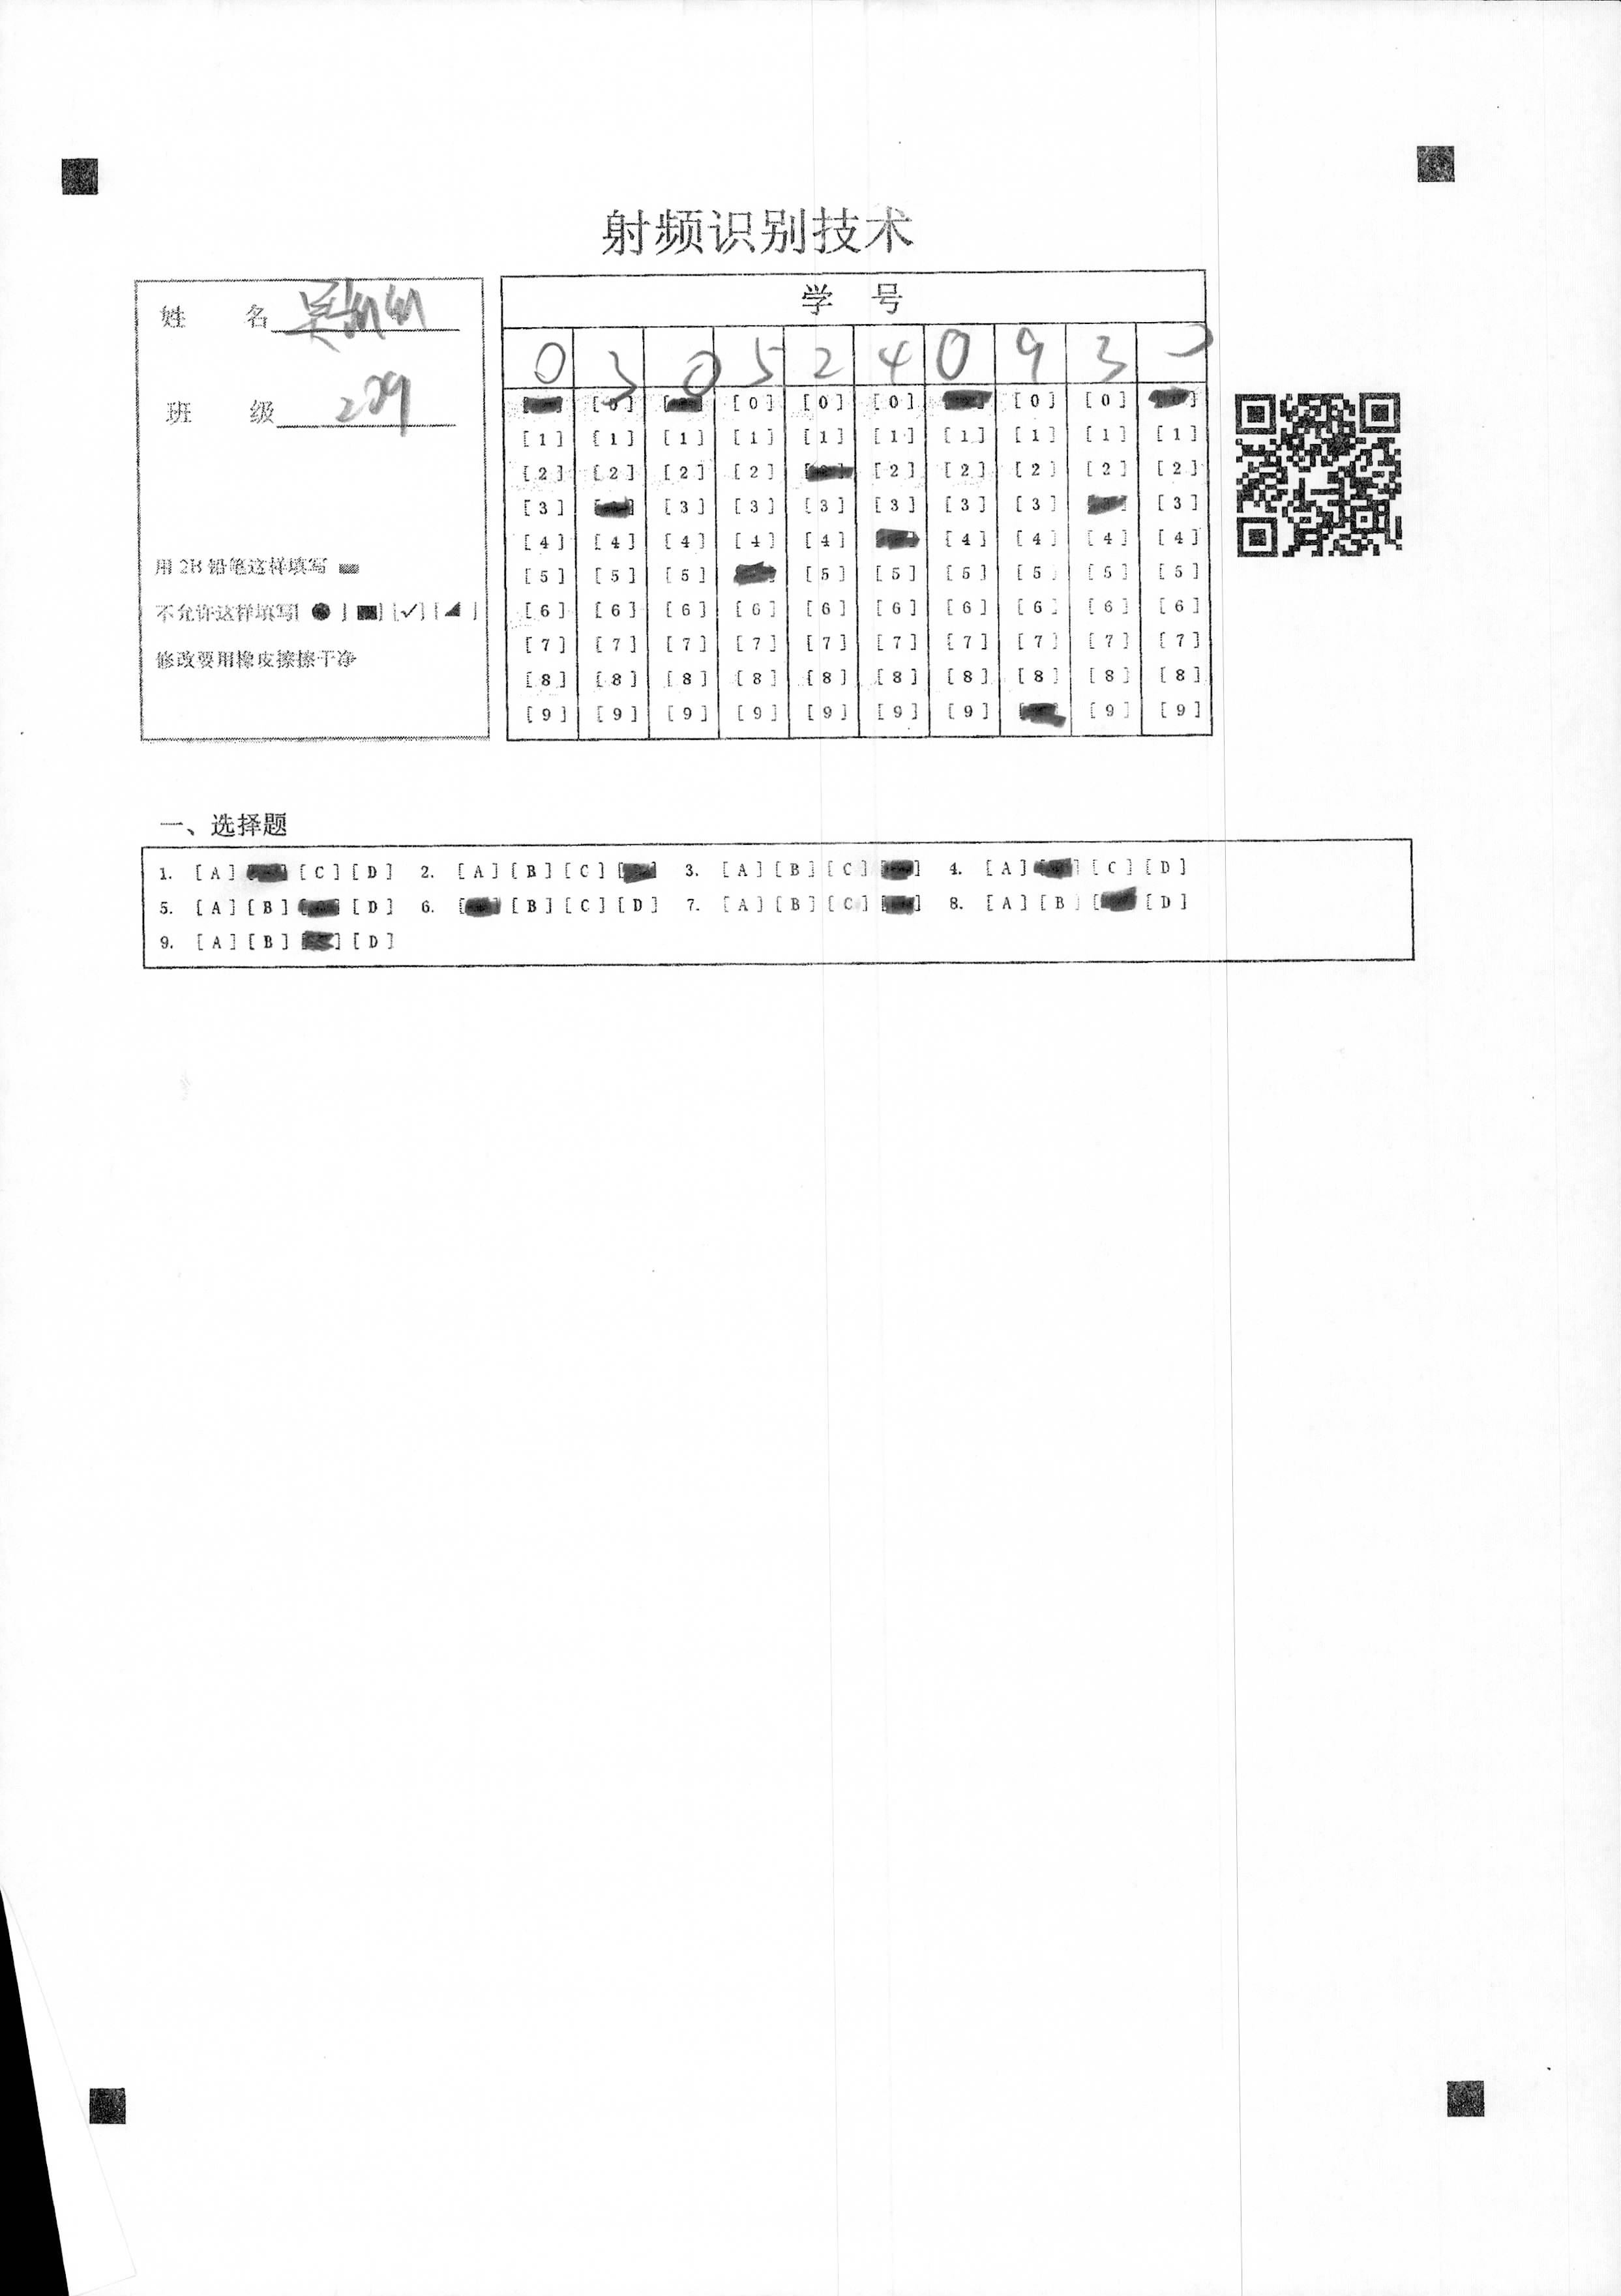 射频识别技术
姓 名 吴
班 级 209
用 2B 铅笔这样填写
不允许这样填写[ ● ] [■] [✓] [◢ ]
修改要用橡皮擦擦干净
学 号
0 3 0 5 2 4 0 9 3
[0] [0] [0] [0] [0] [0]
[1] [1] [1] [1] [1] [1] [1] [1] [1] [1]
[2] [2] [2] [2] [2] [2] [2] [2] [2]
[3] [3] [3] [3] [3] [3] [3] [3]
[4] [4] [4] [4] [4] [4] [4] [4] [4]
[5] [5] [5] [5] [5] [5] [5] [5] [5]
[6] [6] [6] [6] [6] [6] [6] [6] [6] [6]
[7] [7] [7] [7] [7] [7] [7] [7] [7] [7]
[8] [8] [8] [8] [8] [8] [8] [8] [8] [8]
[9] [9] [9] [9] [9] [9] [9] [9] [9]
一、选择题
1. [A] [C] [D] 2. [A] [B] [C] 3. [A] [B] [C] 4. [A] [C] [D]
5. [A] [B] [D] 6. [B] [C] [D] 7. [A] [B] [C] 8. [A] [B] [D]
9. [A] [B] [D]